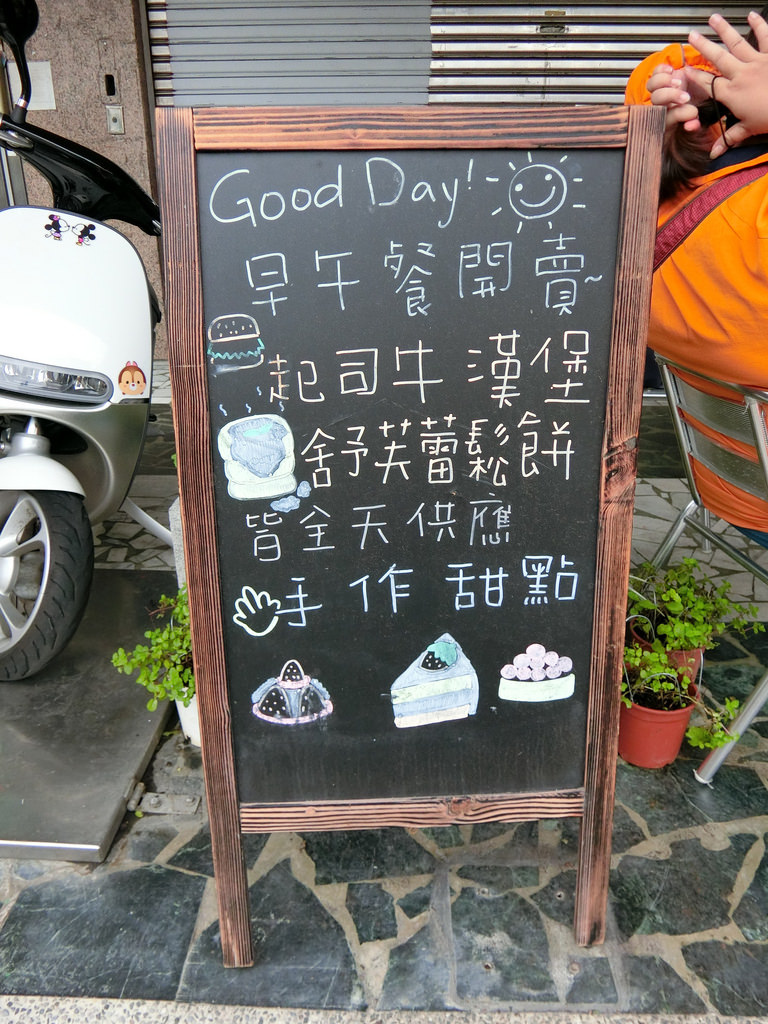 Good Day!
早午餐開賣~
起司牛漢堡
舒芙蕾鬆餅
皆全天供應
手作甜點